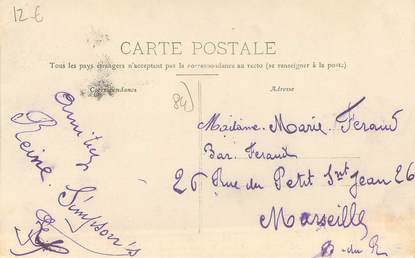 12 €
CARTE POSTALE
Tous les pays étrangers n'acceptent pas la correspondance au recto (se renseigner à la poste)
Correspondance
Amitiés
Reine. Simpson's
84)
Adresse
Madame. Marie. Feraud
Bar. Feraud
26 Rue du Petit Snt Jean 26
Marseille
B-du R